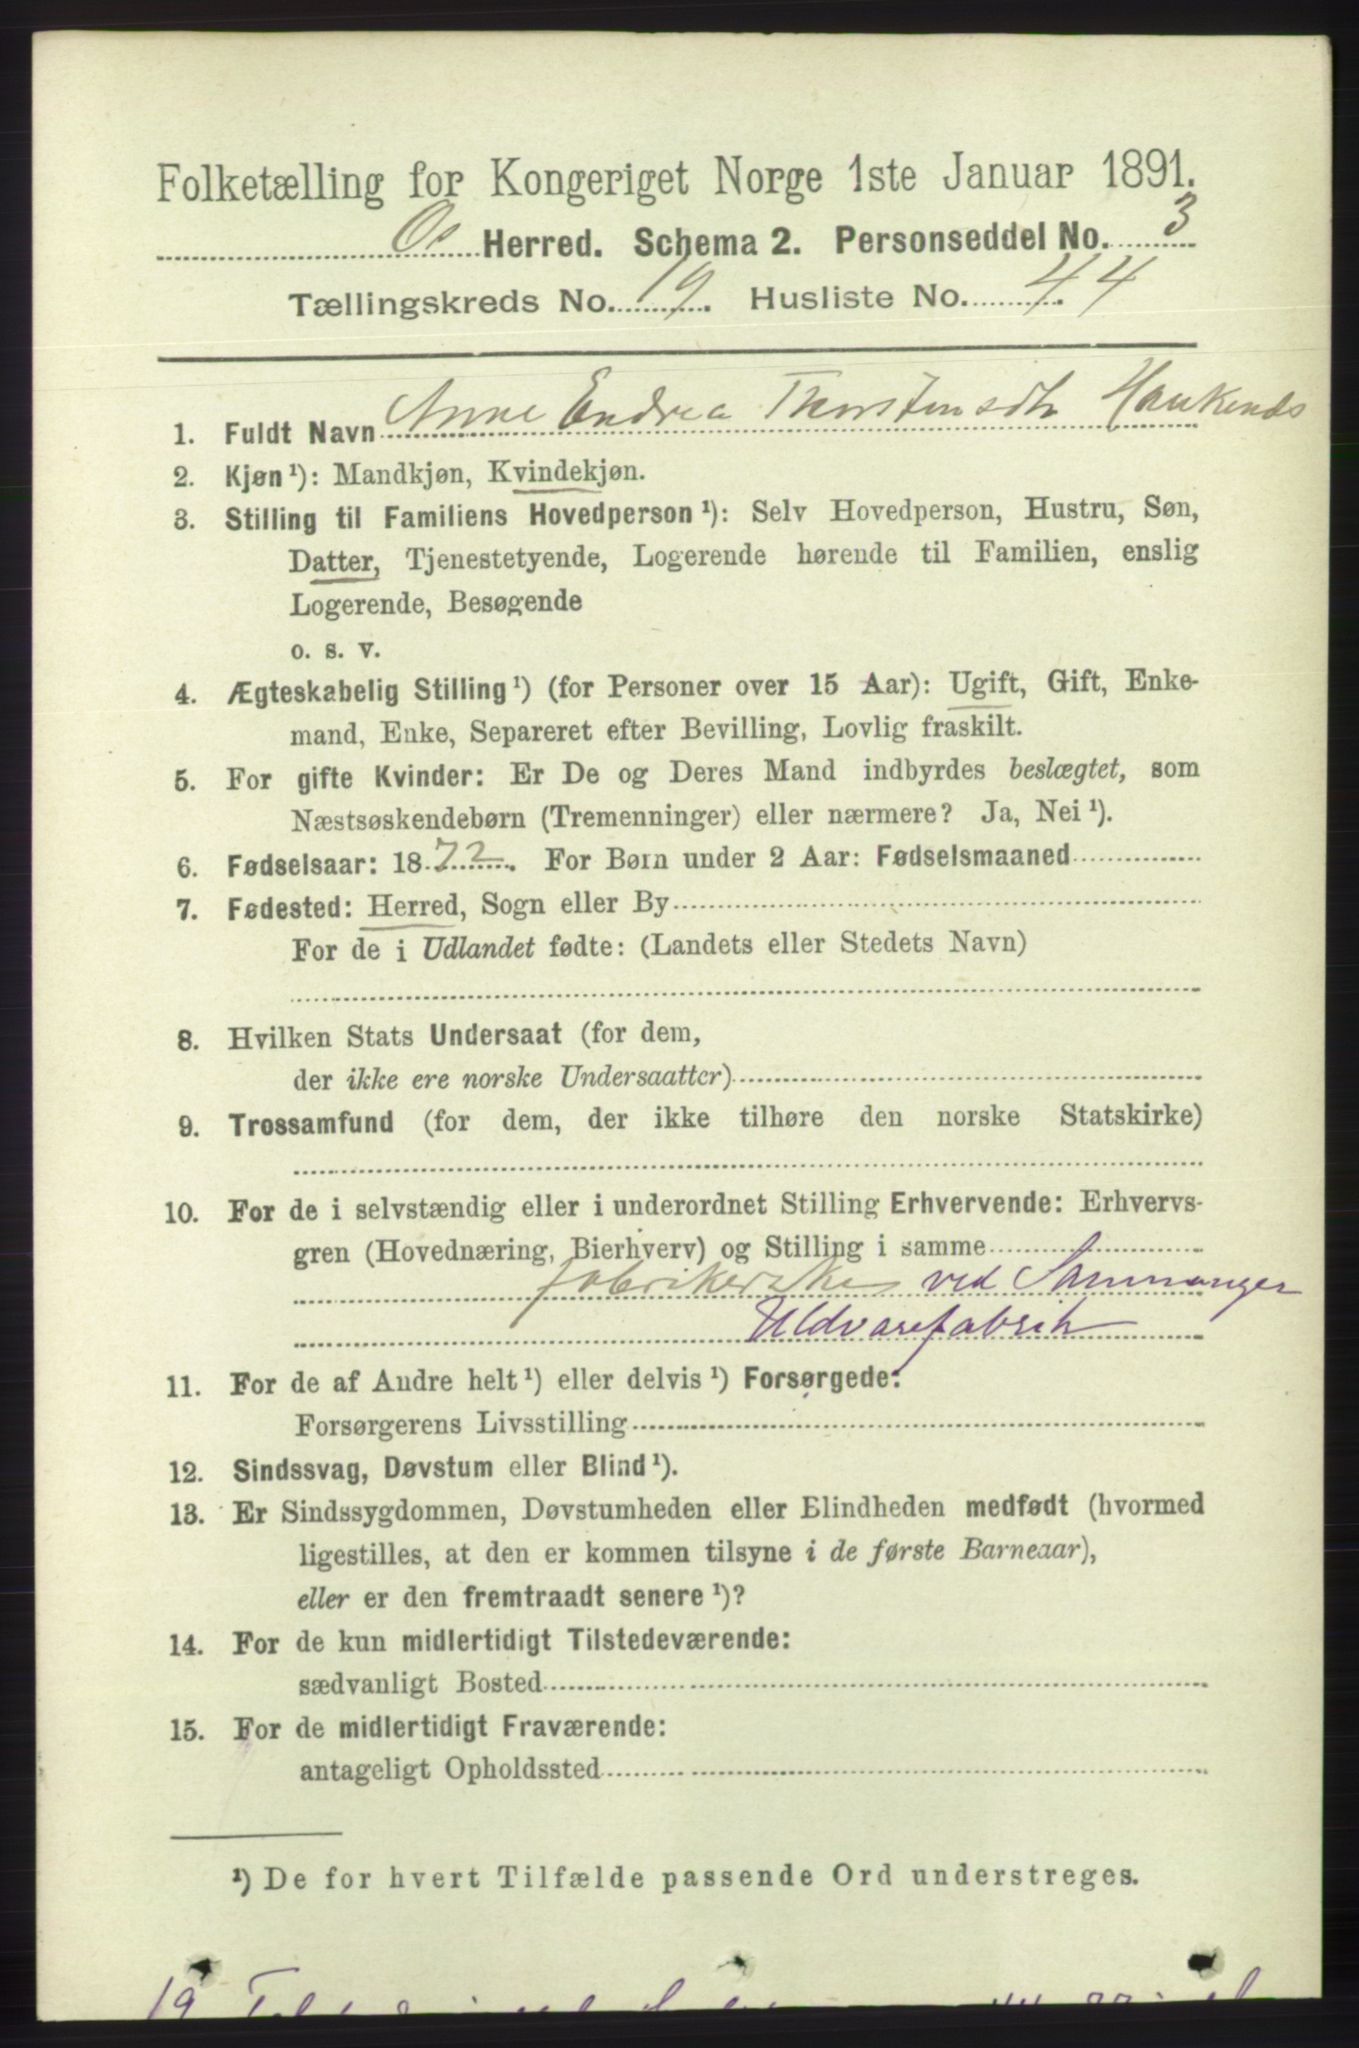 Folketælling for Kongeriget Norge 1ste Januar 1891.
Os Herred. Schema 2. Personseddel No. 3
Tællingskreds No. 19. Husliste No. 44
1. Fuldt Navn Anne Endrea Thorstensdtr Haukenæs
2. Kjøn¹): Mandkjøn, Kvindekjøn.
3. Stilling til Familiens Hovedperson¹): Selv Hovedperson, Hustru, Søn,
Datter, Tjenestetyende, Logerende hørende til Familien, enslig
Logerende, Besøgende
o. s. v.
4. Ægteskabelig Stilling¹) (for Personer over 15 Aar): Ugift, Gift, Enke-
mand, Enke, Separeret efter Bevilling, Lovlig fraskilt.
5. For gifte Kvinder: Er De og Deres Mand indbyrdes beslægtet, som
Næstsøskendebørn (Tremenninger) eller nærmere? Ja, Nei¹).
6. Fødselsaar: 1872. For Børn under 2 Aar: Fødselsmaaned
7. Fødested: Herred, Sogn eller By
For de i Udlandet fødte: (Landets eller Stedets Navn)
8. Hvilken Stats Undersaat (for dem,
der ikke ere norske Undersaatter)
9. Trossamfund (for dem, der ikke tilhøre den norske Statskirke)
10. For de i selvstændig eller i underordnet Stilling Erhvervende: Erhvervs-
gren (Hovednæring, Bierhverv) og Stilling i samme
fabrikerske ved Sammanger
Uldvarefabrik
11. For de af Andre helt¹) eller delvis¹) Forsørgede:
Forsørgerens Livsstilling
12. Sindssvag, Døvstum eller Blind¹).
13. Er Sindssygdommen, Døvstumheden eller Blindheden medfødt (hvormed
ligestilles, at den er kommen tilsyne i de første Barneaar),
eller er den fremtraadt senere¹)?
14. For de kun midlertidigt Tilstedeværende:
sædvanligt Bosted
15. For de midlertidigt Fraværende:
antageligt Opholdssted
¹) De for hvert Tilfælde passende Ord understreges.
19